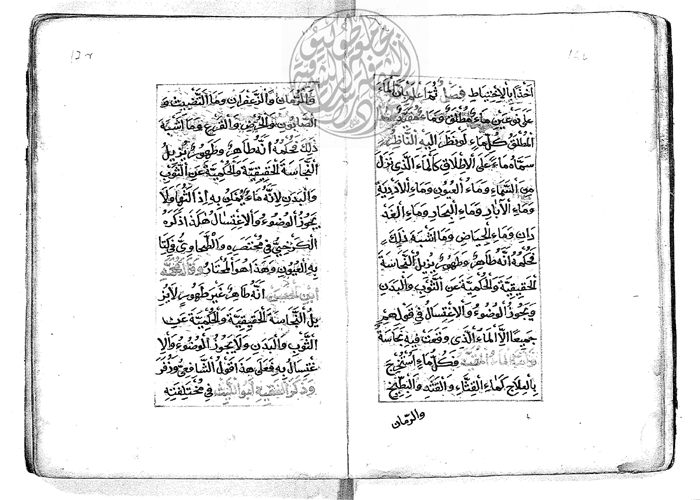 اخذا بالاحتياط فصل ثم اعلم بان الماء
على نوعين ماء مطلق وماء مقيد فاما
المطلق كل ماء لو نظر اليه الناظر
سماه ماء على الاطلاق كالماء الذى نزل
من السماء وماء العيون وماء الاودية
وماء الآبار وماء البحار وماء الغد
ران وماء الحياض وما اشبه ذلك
فحكمه انه طاهر وطهور يزيل النجاسة
الحقيقية والحكمية عن الثوب والبدن
ويجوز الوضوء والاغتسال فى قولهم
جميعا الا الماء الذى وقعت فيه نجاسة
الماء المقيد فكل ماء استخرج
بالعلاج كماء القثاء والقثد والبطيخ
والرمان
والرمان والزعفران وماء
الصابون والحرض والقرع وما اشبه
ذلك فحكمه انه طاهر وطهور يزيل
النجاسة الحقيقية والحكمية عن الثوب
والبدن لانه ماء اذ ولا
يجوز الوضوء والاغتسال هكذا ذكره
الكرخى فى مختصره والطحاوى
به العيون وهذا هو المختار
انه طاهر غير طهور لا يز
يل النجاسة الحقيقية والحكمية عن
الثوب والبدن ولا يجوز الوضوء والا
غتسال به فعلى هذا قول الشافعى وزفر
وذكر الفقيه ابو الليث فى مختلفته